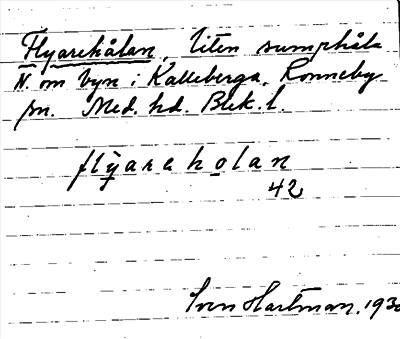 Flyarehålan, liten sumphåla
N. om byn i Kalleberga, Ronneby
sn. Med. hd. Blek. l.
flyareholan
42
Sven Hartman, 193